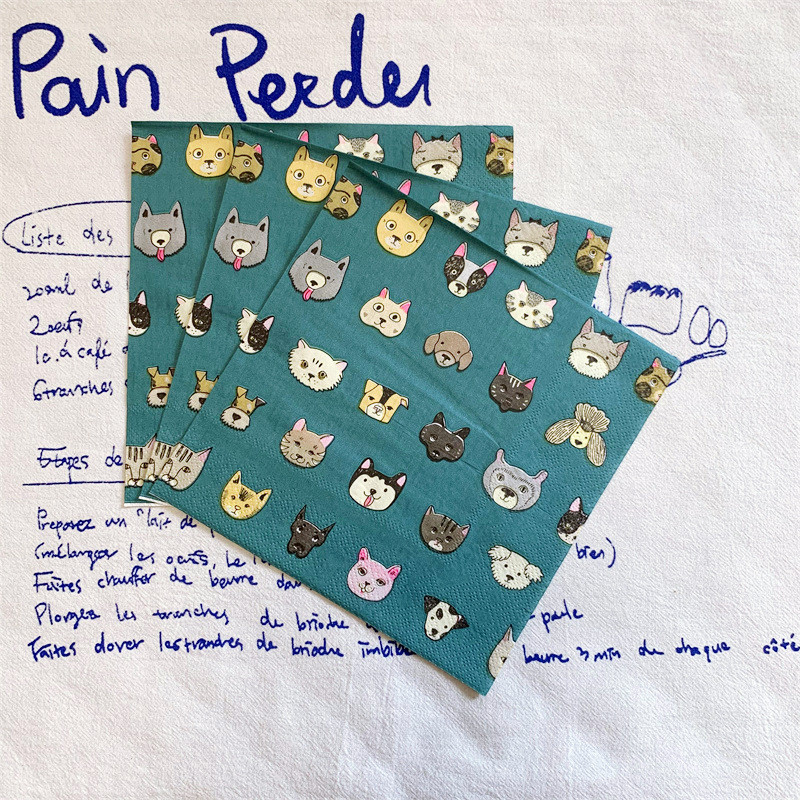 Pain Perdu
Liste des
200ml de
2 oeufs
1c. à café
6 tranches
Etapes de
Preparez un "lait de
(mélanger les oeufs, le bien)
Faites chauffer de beurre
Plongez les tranches de brioche
Faites dorer les tranches de brioche imbibe beurre 3 min de chaque côté